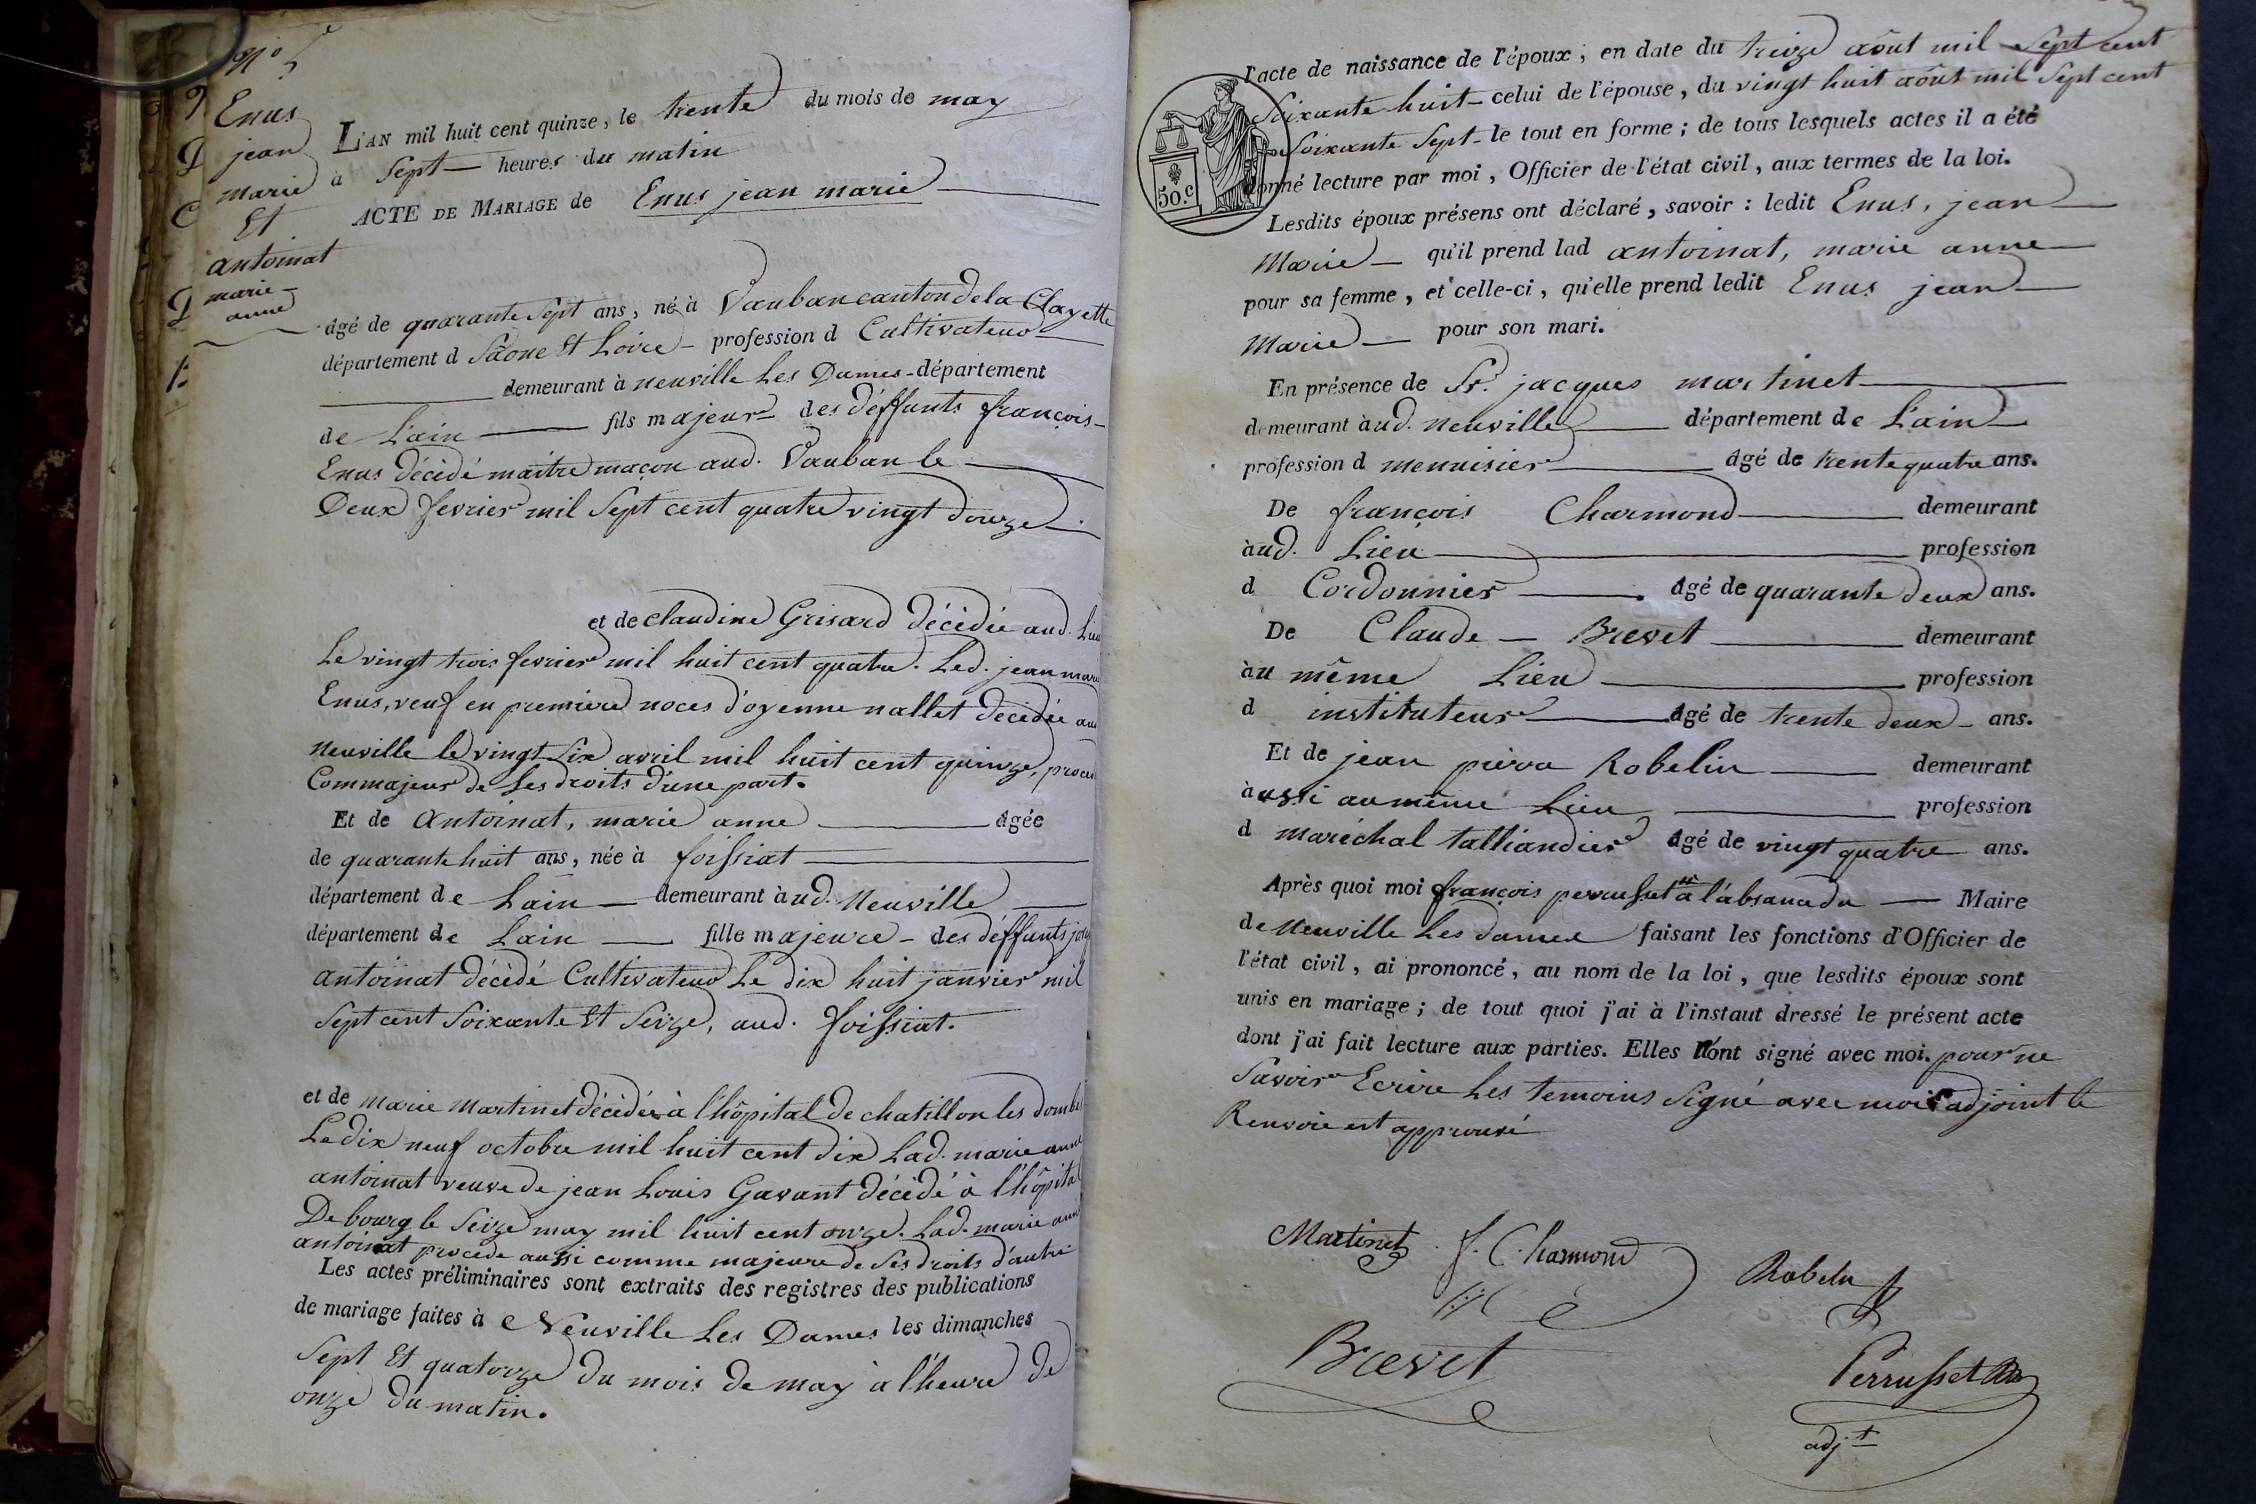 N.º 5.e
Enus
jean
marie
Et
antoinat
marie
anne
L'AN mil huit cent quinze, le trente du mois de may
à Sept heures du matin
ACTE DE MARIAGE de Enus jean marie
âgé de quarante Sept ans, né à Vauban canton de la Clayette
département d Sâone Et Loire profession d Cultivateur
demeurant à neuville Les Dames département
de L'ain fils majeur des déffunts françois
Enus décédé maitre maçon aud. Vauban le
Deux fevrier mil Sept cent quatre vingt douze
et de claudine Grisard décédée aud. Lieu
Le vingt trois fevrier mil huit cent quatre. Led. jean marie
Enus, veuf en premiere noces d'oyenne nallet décédée aud
Neuville le vingt Six avril mil huit cent quinze, procéd
Comme majeur de Ses droits d'une part.
Et de Antoinat, marie anne âgée
de quarante huit ans, née à foissiat
département de Lain demeurant àud. Neuville
département de Lain fille majeure des déffunts
antoinat décédé Cultivateur Le dix huit janvier mil
Sept cent Soixante Et Seize, aud. foissiat.
et de marie Martinet décédée à l'hôpital de chatillon les dombes
Le dix neuf octobre mil huit cent dix Lad. marie anne
antoinat veuve de jean Louis Gavant décédé à l'hôpital
De bourg le Seize may mil huit cent onze. Lad. marie anne
antoinat procede aussi comme majeure de Ses droits d'autre
Les actes préliminaires sont extraits des registres des publications
de mariage faites à Neuville Les Dames les dimanches
Sept Et quatorze du mois de may à l'heure de
onze du matin.
l'acte de naissance de l'époux ; en date du treize aôut mil Sept cent
Soixante huit celui de l'épouse, du vingt huit aôut mil Sept cent
Soixante Sept le tout en forme ; de tous lesquels actes il a été
donné lecture par moi, Officier de l'état civil, aux termes de la loi.
50.c
Lesdits époux présens ont déclaré, savoir : ledit Enus, jean
Marie qu'il prend lad antoinat, marie anne
pour sa femme, et celle-ci, qu'elle prend ledit Enus jean
Marie pour son mari.
En présence de Sr. jacques martinet
demeurant àud. Neuville département de L'ain
profession d menuisier âgé de trente quatre ans.
De françois Charmond demeurant
àud. Lieu profession
d Cordonnier âgé de quarante deux ans.
De Claude Brevet demeurant
àu même Lieu profession
d instituteur âgé de trente deux ans.
Et de jean pierre Robelin demeurant
àussi au même Lieu profession
d maréchal talliandier âgé de vingt quatre ans.
Après quoi moi françois perrusset à l'absance du Maire
de Neuville Les dames faisant les fonctions d'Officier de
l'état civil, ai prononcé, au nom de la loi, que lesdits époux sont
unis en mariage ; de tout quoi j'ai à l'instaut dressé le présent acte
dont j'ai fait lecture aux parties. Elles n'ont signé avec moi. pour ne
Savoir Ecrire Les temoins Signé avec moi adjoint le
Renvoie est approuvé
Martinet f. Charmond Robelin
Brevet Perrusset
adj.t